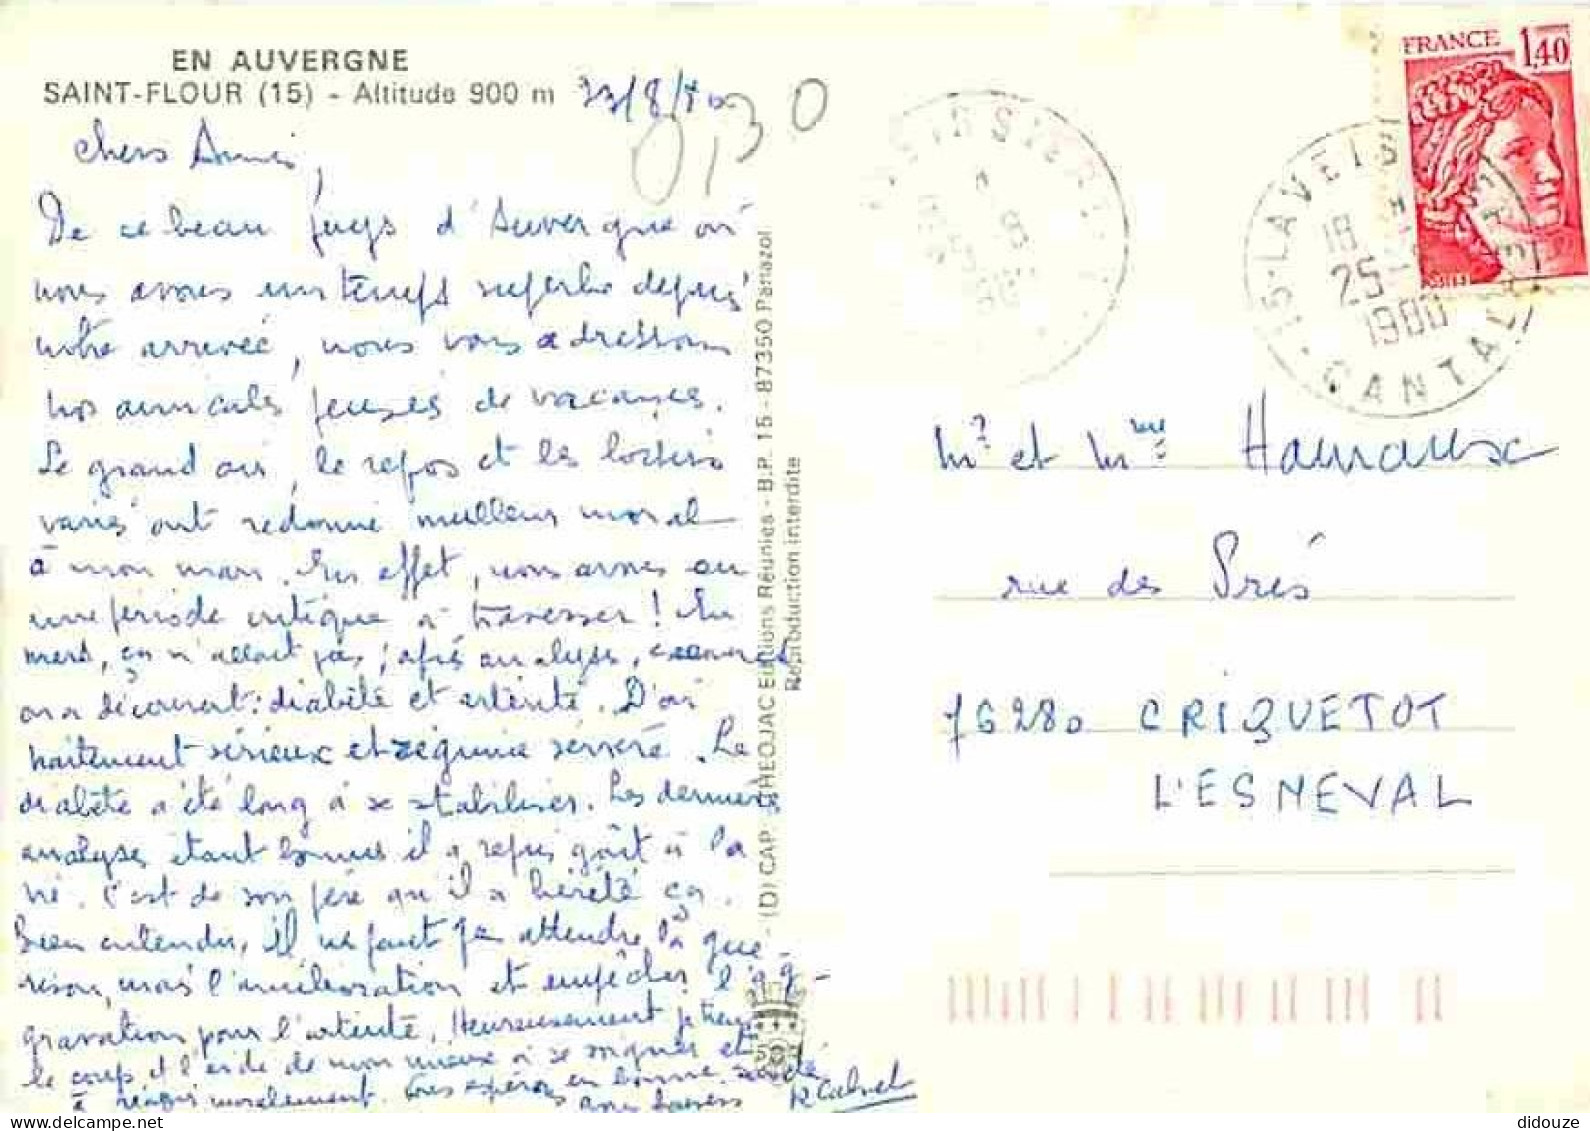 EN AUVERGNE
SAINT-FLOUR (15) - Altitude 900 m
0,30
chers Amis,
De ce beau pays d'Auvergne où
nous avons un temps superbe depuis
notre arrivée, nous vous adressons
nos amicales pensées de vacances.
Le grand air, le repos et les loisirs
variés ont redonné meilleur moral
à mon mari. En effet, nous avons eu
une période critique à traverser ! En
mars, ça n'allait pas ; après analyse,
on a découvert : diabète et artérite. D'où
traitement sérieux et régime sévère. Le
diabète a été long à se stabiliser. Les dernières
analyses étant bonnes il a repris goût à la
vie. C'est de son père qu'il a hérité ça.
Bien entendu, il ne faut pas attendre la gué-
rison, mais l'amélioration et empêcher l'ag-
gravation pour l'artérite. Heureusement je tiens
le coup et l'aide de mon mieux à se soigner et
à réagir moralement. Vous espérons en bonne santé
Bons baisers
R Calvet
(D) CAP. THEOJAC Editions Réunies - B.P. 15 - 87350 Panazol
Reproduction interdite
FRANCE 1,40
POSTES
15-LAVEISSIERE
18 H
25
1980
CANTAL
Mr et Mme Hamaux
rue des Prés
76280 CRIQUETOT
L'ESNEVAL
didouze